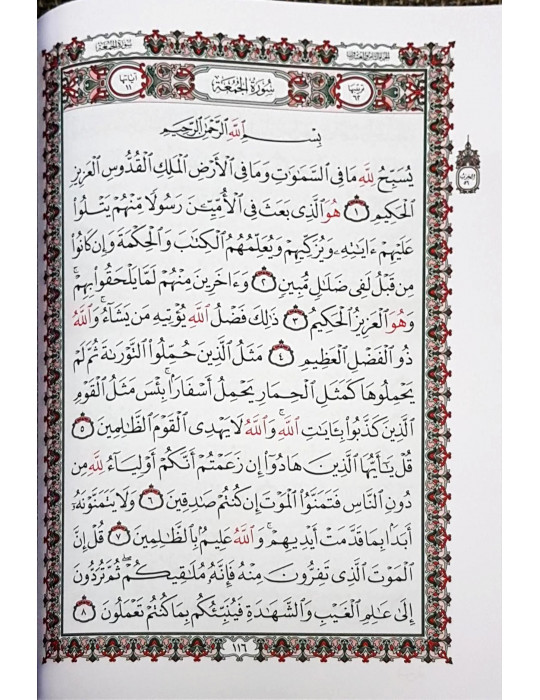 الجزء الثامن والعشرون
سورة الجمعة
ترتيبها ٦٢
سُورَةُ الجُمُعَةِ
آياتها ١١
بِسْمِ اللَّهِ الرَّحْمَٰنِ الرَّحِيمِ
يُسَبِّحُ لِلَّهِ مَا فِي السَّمَٰوَٰتِ وَمَا فِي الْأَرْضِ الْمَلِكِ الْقُدُّوسِ الْعَزِيزِ
الْحَكِيمِ ١ هُوَ الَّذِي بَعَثَ فِي الْأُمِّيِّـۧنَ رَسُولًا مِّنْهُمْ يَتْلُوا
عَلَيْهِمْ ءَايَٰتِهِۦ وَيُزَكِّيهِمْ وَيُعَلِّمُهُمُ الْكِتَٰبَ وَالْحِكْمَةَ وَإِن كَانُوا
مِن قَبْلُ لَفِي ضَلَٰلٍ مُّبِينٍ ٢ وَءَاخَرِينَ مِنْهُمْ لَمَّا يَلْحَقُوا بِهِمْ ۚ
وَهُوَ الْعَزِيزُ الْحَكِيمُ ٣ ذَٰلِكَ فَضْلُ اللَّهِ يُؤْتِيهِ مَن يَشَآءُ ۚ وَاللَّهُ
ذُو الْفَضْلِ الْعَظِيمِ ٤ مَثَلُ الَّذِينَ حُمِّلُوا التَّوْرَىٰةَ ثُمَّ لَمْ
يَحْمِلُوهَا كَمَثَلِ الْحِمَارِ يَحْمِلُ أَسْفَارًۢا ۚ بِئْسَ مَثَلُ الْقَوْمِ
الَّذِينَ كَذَّبُوا بِـَٔايَٰتِ اللَّهِ ۚ وَاللَّهُ لَا يَهْدِي الْقَوْمَ الظَّٰلِمِينَ ٥
قُلْ يَٰٓأَيُّهَا الَّذِينَ هَادُوٓا إِن زَعَمْتُمْ أَنَّكُمْ أَوْلِيَآءُ لِلَّهِ مِن
دُونِ النَّاسِ فَتَمَنَّوُا الْمَوْتَ إِن كُنتُمْ صَٰدِقِينَ ٦ وَلَا يَتَمَنَّوْنَهُۥٓ
أَبَدًۢا بِمَا قَدَّمَتْ أَيْدِيهِمْ ۚ وَاللَّهُ عَلِيمٌۢ بِالظَّٰلِمِينَ ٧ قُلْ إِنَّ
الْمَوْتَ الَّذِي تَفِرُّونَ مِنْهُ فَإِنَّهُۥ مُلَٰقِيكُمْ ۖ ثُمَّ تُرَدُّونَ
إِلَىٰ عَٰلِمِ الْغَيْبِ وَالشَّهَٰدَةِ فَيُنَبِّئُكُم بِمَا كُنتُمْ تَعْمَلُونَ ٨
الحزب
٥٦
١١٦